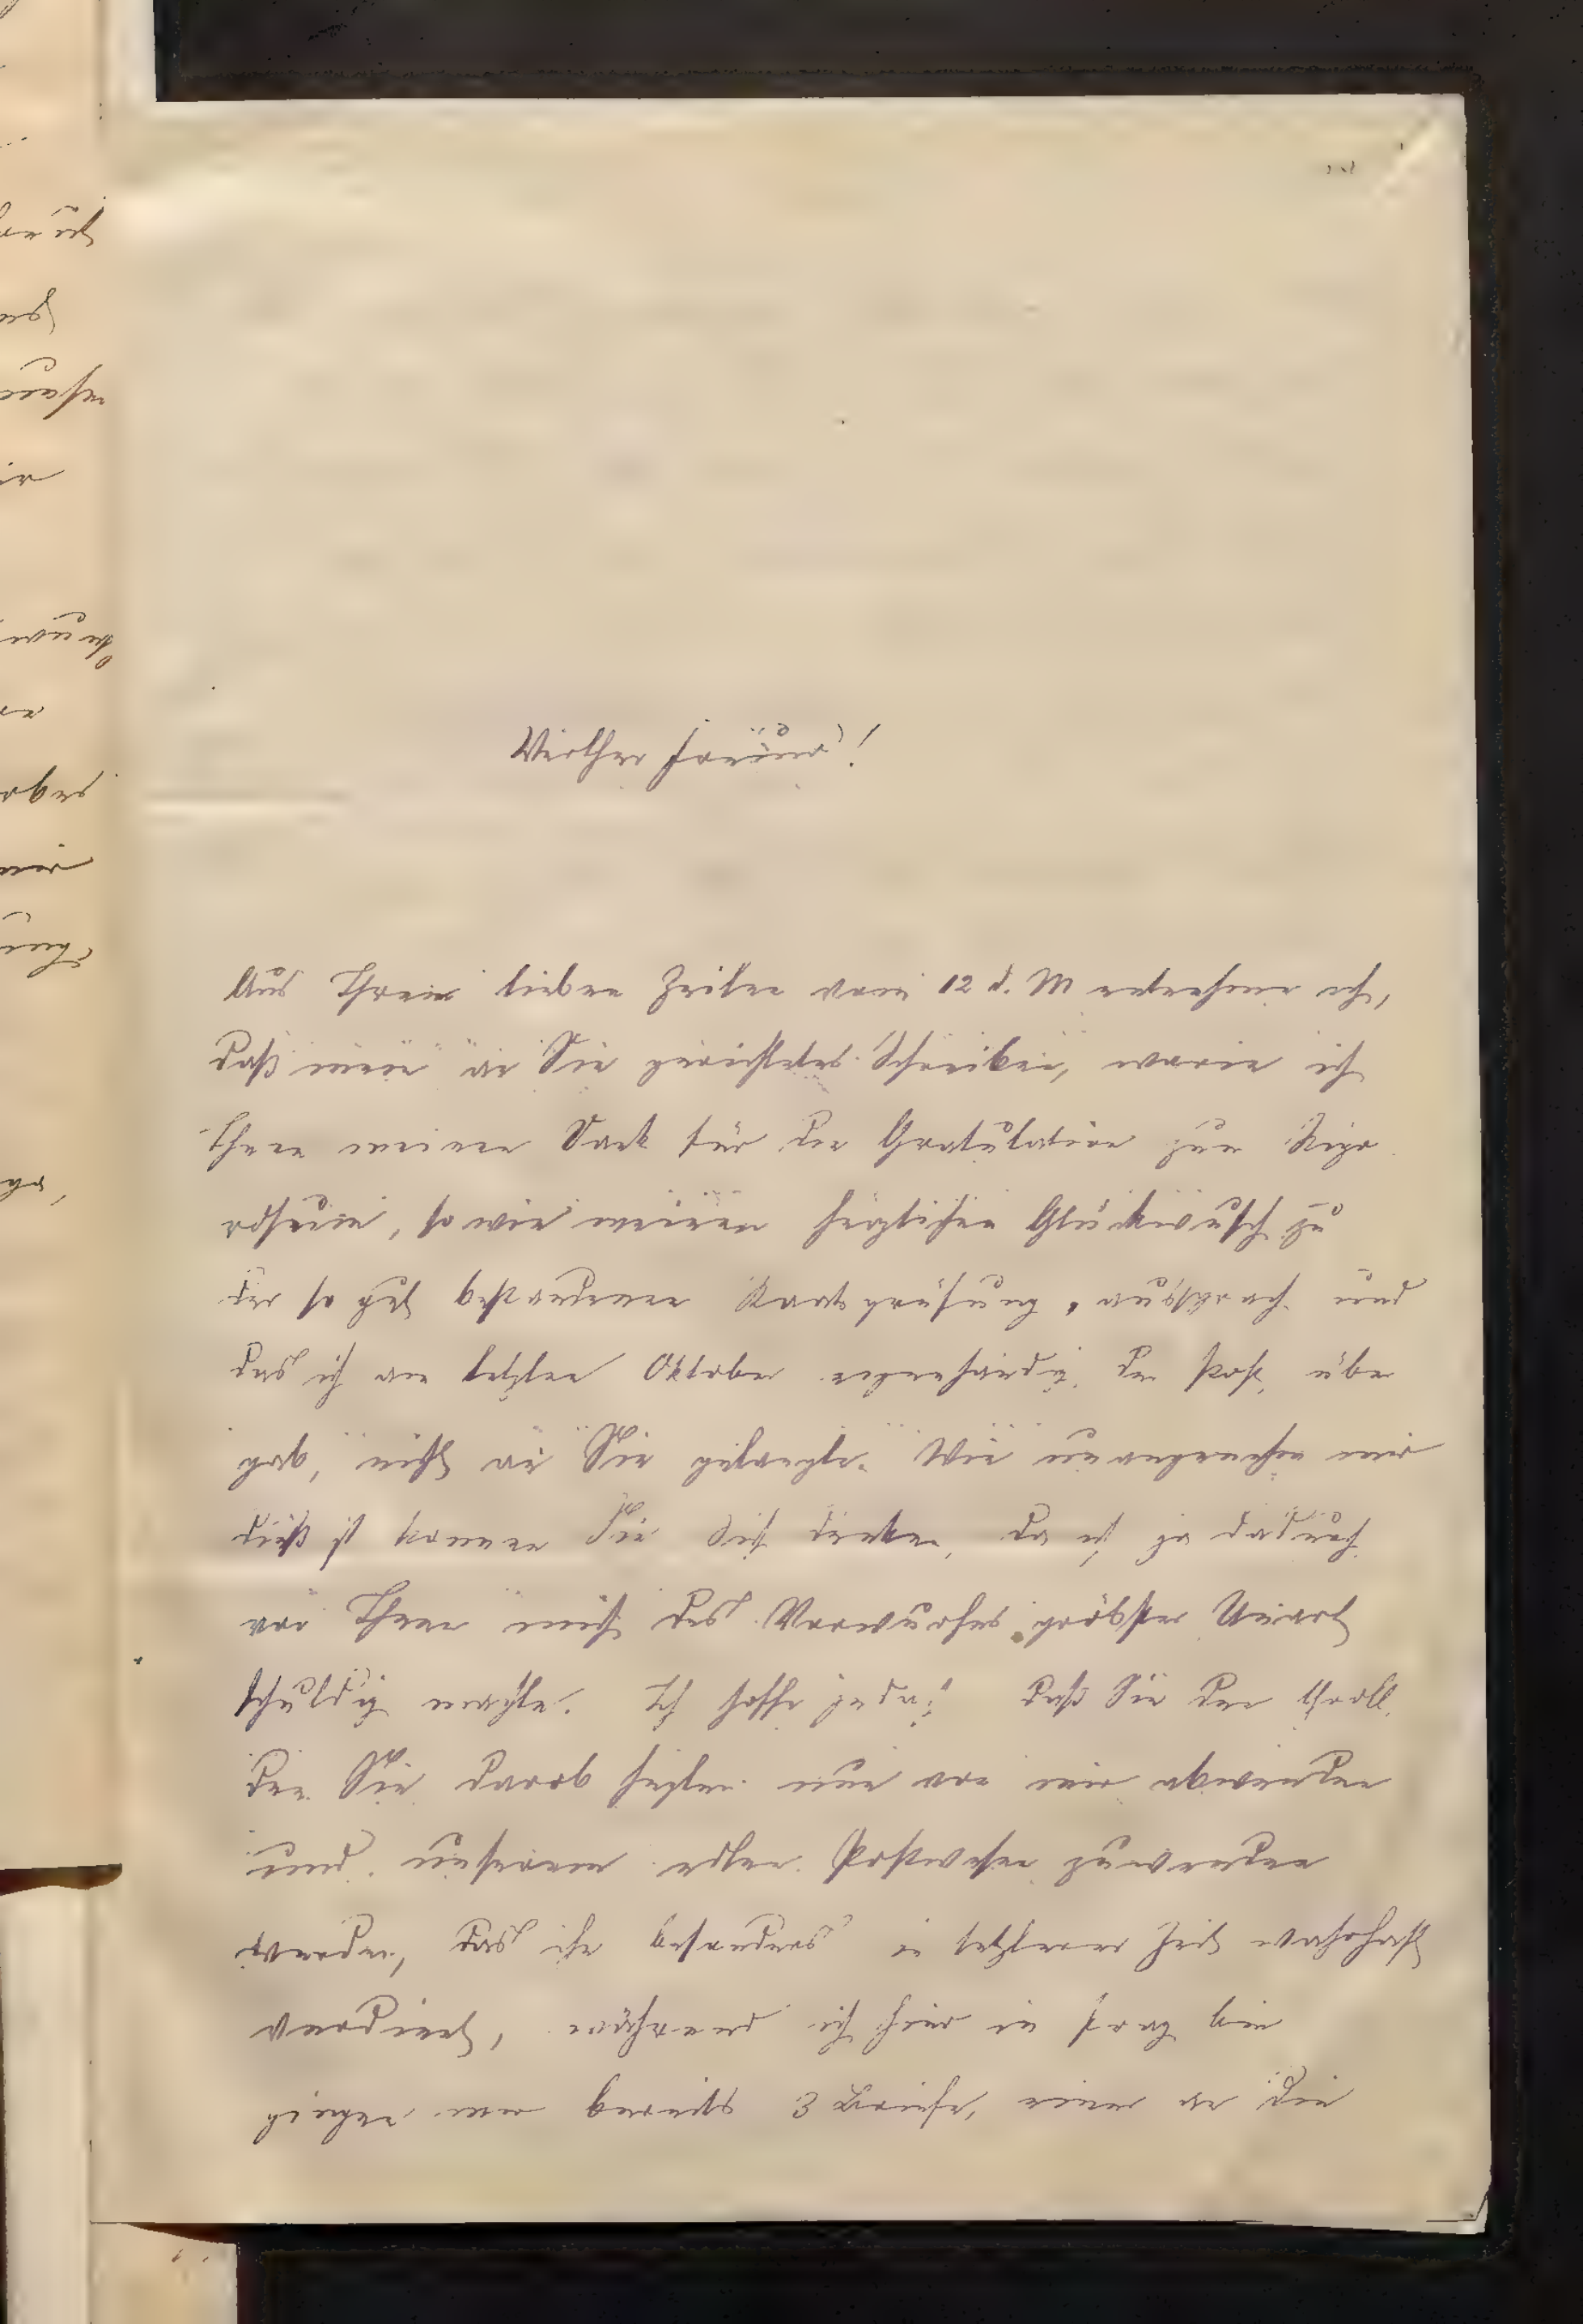 Werther Freund!
Aus Ihren lieben Zeilen vom 12 d. M entnehme ich,
daß mein an Sie gerichtetes Schreiben, worin ich
Ihnen meinen Dank für die Gratulation zum Rigo
rosum, so wie meinen herzlichen Glückwusch zu
der so gut bestandenen Staatsprüfung, aussprach und
das ich am letzten Oktober eigenhändig der Post über
gab, nicht an Sie gelangte. Wie unangenehm mir
dieß ist können Sie sich denken, da ich ja dadurch
vor Ihnen mich des Vorwurfes gröbster Unart
schuldig machte. Ich hoffe jedoch daß Sie den Groll
den Sie darob hegten nun von mir abwenden
und unserem edlen Postwesen zuwenden
werden, das ihn besonders in letzterer Zeit wahrhaft
verdient, während ich hier in Prag bin
gingen mir bereits 3 Briefe, einer an die